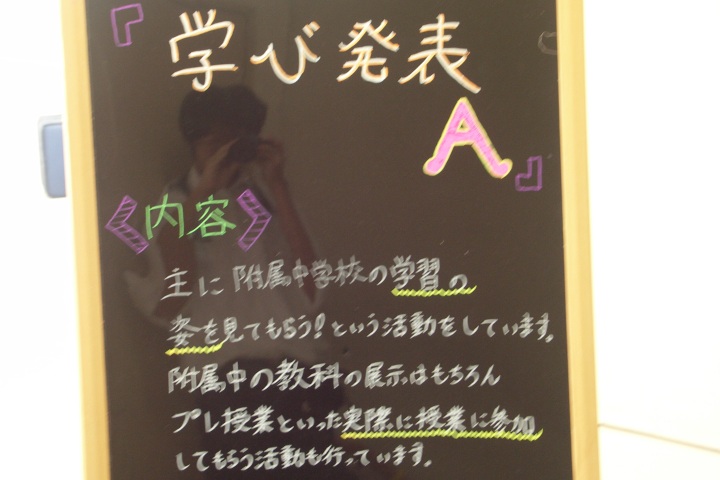 『学び発表
A』
《内容》
主に附属中学校の学習の
姿を見てもらう!という活動をしています。
附属中の教科の展示はもちろん
プレ授業といった実際に授業に参加
してもらう活動も行っています。